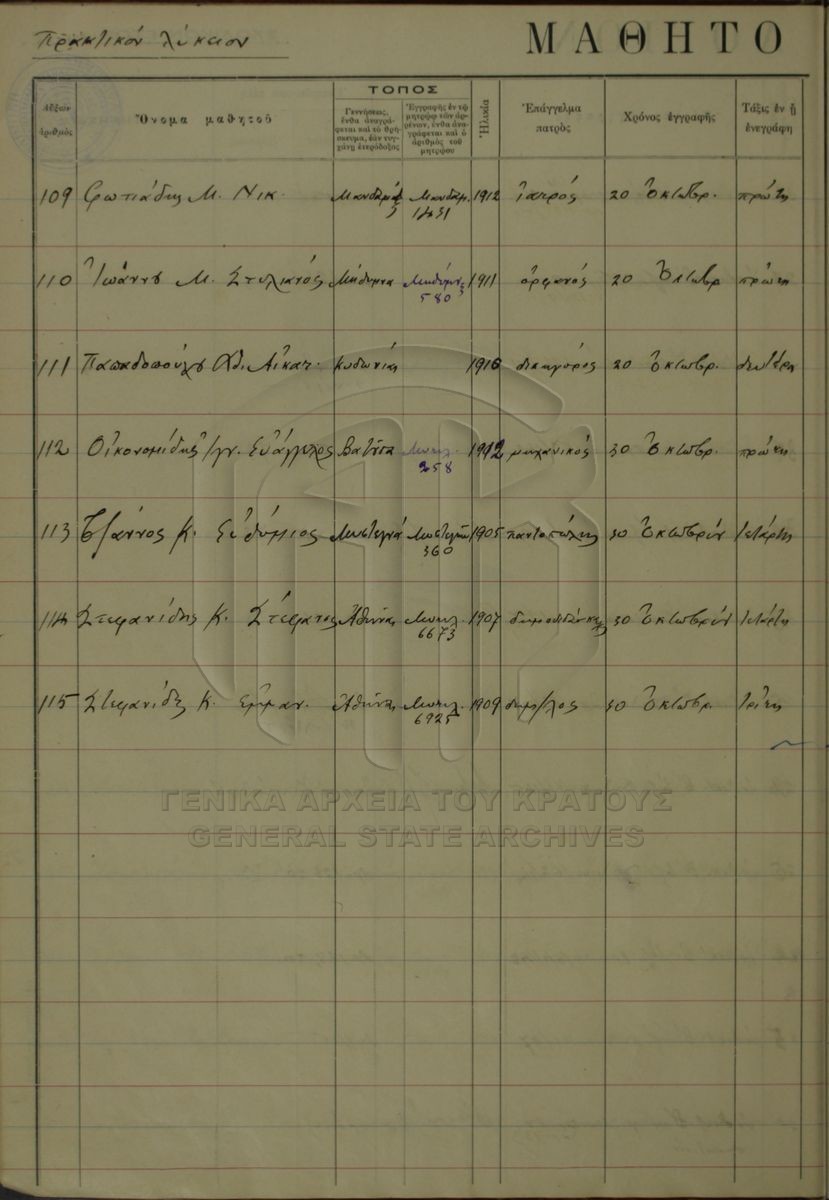 Πρακτικόν Λύκειον
ΜΑΘΗΤΟ
Αὔξων ἀριθμὸς
Ὄνομα μαθητοῦ
ΤΟΠΟΣ
Γεννήσεως, ἔνθα ἀναγράφεται καὶ τὸ θρήσκευμα, ἐὰν τυγχάνῃ ἑτερόδοξος
Ἐγγραφῆς ἐν τῷ μητρῴῳ τῶν ἀρρένων, ἔνθα ἀναγράφεται καὶ ὁ ἀριθμὸς τοῦ μητρῴου
Ἡλικία
Ἐπάγγελμα πατρὸς
Χρόνος ἐγγραφῆς
Τάξις ἐν ᾗ ἐνεγράφη
109 Φωτιάδης Μ. Νικ. Μανταμ. 1431 1912 ἰατρός 20 Ὀκτωβρ. πρώτη
110 Ἰωάννου Μ. Στυλιανός Μήθυμνα Μηθύμνης 580 1911 ὀρφανός 20 Ὀκτωβρ πρώτη
111 Παπαδοπούλου Αἰκατ. Κυδωνίαι 1916 δικηγόρος 20 Ὀκτωβρ. δευτέρα
112 Οἰκονομίδης Εὐάγγελος Βατοῦσα Μυτιλ. 258 1912 μηχανικός 30 Ὀκτωβρ. πρώτη
113 Τζάννος Κ. Εὐθύμιος Μυστεγνά Μυστεγνῶν 360 1905 παντοπώλης 30 Ὀκτωβρίου τετάρτη
114 Στεφανίδης Κ. Στέφανος Ἀθῆναι Μυτιλ. 6673 1907 δημοδιδάσκαλος 30 Ὀκτωβρίου τετάρτη
115 Στεφανίδης Κ. Ἐμμαν. Ἀθῆναι Μυτιλ. 6925 1909 δημ/λος 30 Ὀκτωβρ. τρίτη
ΓΕΝΙΚΑ ΑΡΧΕΙΑ ΤΟΥ ΚΡΑΤΟΥΣ
GENERAL STATE ARCHIVES